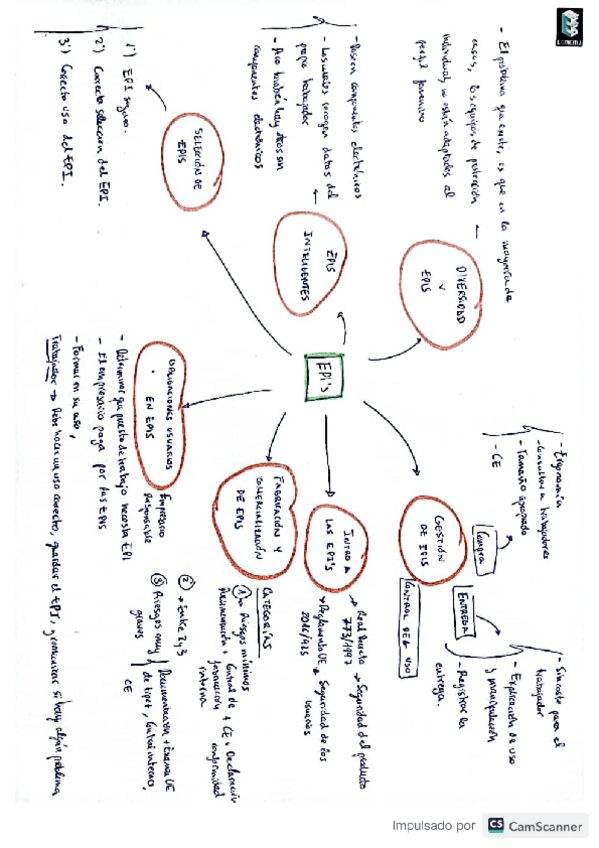 EPI's
DIVERSIDAD
Y
EPIS
- El problema que existe, es que en la mayoría de
casos, los equipos de protección
individual, no están adaptados al
perfil femenino
EPIS
INTELIGENTES
- Poseen componentes electrónicos
- Los cuales recogen datos del
propio trabajador
componentes electrónicos
SELECCIÓN DE
EPIS
1º) EPI seguro.
2º) Correcta selección del EPI.
3º) Correcto uso del EPI.
OBLIGACIONES USUARIOS
EN EPIS
Empresario
Responsable
- Determinar que puesto de trabajo necesita EPI
- El empresario paga por los EPIS
- Formar en su uso,
Trabajador → Debe hacer un uso correcto, guardar el EPI, y comunicar si hay algún problema
FABRICACIÓN Y
COMERCIALIZACIÓN
DE EPIS
CATEGORÍAS
① → Riesgos mínimos
Documentación + Control de + CE + Declaración
fabricación conformidad
interna
② → Entre 1 y 3
③ Riesgos muy
graves
Documentación + Examen UE
de tipo, Control interno,
CE
INTRO A
LAS EPI'S
→ Real Decreto → Seguridad del producto
773/1997
→ Reglamento UE → Seguridad de los
2016/425 usuarios
GESTIÓN
DE EPIS
Compra
- Ergonomía
- Consultar a trabajadores
- Tamaño apropiado
- CE
ENTREGA
- Sin coste para el
trabajador
- Explicación de uso
y manipulación
- Registrar la
entrega.
CONTROL DEL USO
Impulsado por CS CamScanner